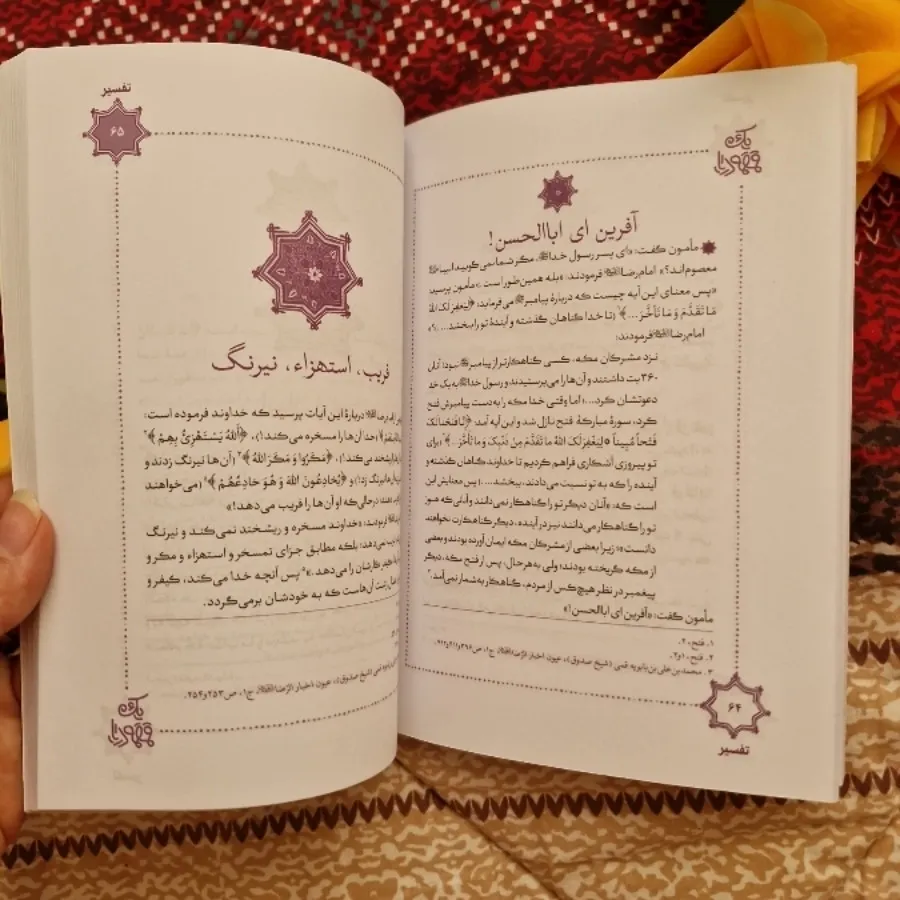 یک
قهوه‌ریا
آفرین ای اباالحسن!
مأمون گفت: «ای پسر رسول خدا، مگر شما نمی‌گویید انبیا
معصوم‌اند؟» امام رضا فرمودند: «بله همین طور است.» مأمون پرسید:
«پس معنای این آیه چیست که دربارهٔ پیامبر می‌فرماید: ﴿لِيَغْفِرَ لَكَ اللَّهُ
مَا تَقَدَّمَ وَ مَا تَأَخَّرَ...﴾¹ (تا خدا گناهان گذشته و آیندهٔ تو را ببخشد...)؟»
امام رضا فرمودند:
نزد مشرکان مکه، کسی گناهکارتر از پیامبر نبود؛ آنان
۳۶۰ بت داشتند و آن‌ها را می‌پرستیدند و رسول خدا به یک خدا
دعوتشان کرد...؛ اما وقتی خدا مکه را به‌دست پیامبرش فتح
کرد، سورهٔ مبارکهٔ فتح نازل شد و این آیه آمد: ﴿إِنَّا فَتَحْنَا لَكَ
فَتْحاً مُبِيناً * لِيَغْفِرَ لَكَ اللَّهُ مَا تَقَدَّمَ مِنْ ذَنْبِكَ وَ مَا تَأَخَّرَ...﴾² (برای
تو پیروزی آشکاری فراهم کردیم تا خداوند گناهان گذشته و
آینده را که به تو نسبت می‌دادند، ببخشد...). پس معنایش این
است که: «آنان دیگر تو را گناهکار نمی‌دانند و آنانی که هنوز
تو را گناهکار می‌دانند نیز در آینده، دیگر گناهکارت نخواهند
دانست»؛ زیرا بعضی از مشرکان مکه ایمان آورده بودند و بعضی
از مکه گریخته بودند؛ ولی به‌هرحال، پس از فتح مکه، دیگر
پیغمبر در نظر هیچ‌کس از مردم، گناهکار به‌شمار نمی‌آمد.³
مأمون گفت: «آفرین ای اباالحسن!»
۱. فتح، ۲.
۲. فتح، ۱و۲.
۳. محمد بن علی بن بابویه قمی (شیخ صدوق)، عیون اخبار الرضا، ج۱،
۶۴
تفسیر
تفسیر
۶۵
فریب، استهزاء، نیرنگ
دربارهٔ این آیات پرسید که خداوند فرموده است:
(خدا آن‌ها را مسخره می‌کند!)، ﴿اَللهُ يَسْتَهْزِئُ بِهِمْ﴾²
می‌کند!)، ﴿مَكَرُوا وَ مَكَرَ اللهُ﴾³ (آن‌ها نیرنگ زدند و
نیرنگ زد!) و ﴿يُخَادِعُونَ اللهَ وَ هُوَ خَادِعُهُمْ﴾⁴ (می‌خواهند
درحالی‌که او آن‌ها را فریب می‌دهد!)»
«خداوند مسخره و ریشخند نمی‌کند و نیرنگ
نمی‌دهد؛ بلکه مطابق جزای تمسخر و استهزاء و مکر و
کارشان را می‌دهد.»⁵ پس آنچه خدا می‌کند، کیفر و
زشت آن‌هاست که به خودشان برمی‌گردد.
قمی (شیخ صدوق)، عیون اخبار الرضا، ج۱، ص۲۵۳و۲۵۴.
یک
قهوه‌ریا